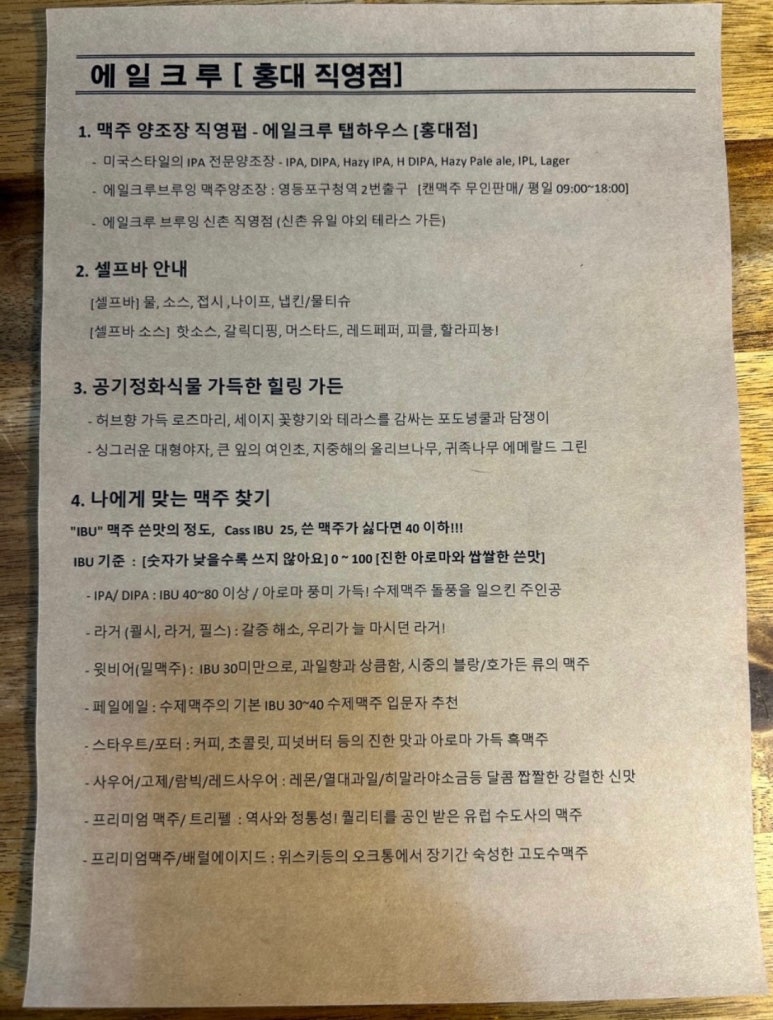 에 일 크 루 [ 홍대 직영점]
1. 맥주 양조장 직영펍 - 에일크루 탭하우스 [홍대점]
- 미국스타일의 IPA 전문양조장 - IPA, DIPA, Hazy IPA, H DIPA, Hazy Pale ale, IPL, Lager
- 에일크루브루잉 맥주양조장 : 영등포구청역 2번출구 [캔맥주 무인판매/ 평일 09:00~18:00]
- 에일크루 브루잉 신촌 직영점 (신촌 유일 야외 테라스 가든)
2. 셀프바 안내
[셀프바] 물, 소스, 접시 ,나이프, 냅킨/물티슈
[셀프바 소스] 핫소스, 갈릭디핑, 머스타드, 레드페퍼, 피클, 할라피뇽!
3. 공기정화식물 가득한 힐링 가든
- 허브향 가득 로즈마리, 세이지 꽃향기와 테라스를 감싸는 포도넝쿨과 담쟁이
- 싱그러운 대형야자, 큰 잎의 여인초, 지중해의 올리브나무, 귀족나무 에메랄드 그린
4. 나에게 맞는 맥주 찾기
"IBU" 맥주 쓴맛의 정도, Cass IBU 25, 쓴 맥주가 싫다면 40 이하!!!
IBU 기준 : [숫자가 낮을수록 쓰지 않아요] 0 ~ 100 [진한 아로마와 쌉쌀한 쓴맛]
- IPA/ DIPA : IBU 40~80 이상 / 아로마 풍미 가득! 수제맥주 돌풍을 일으킨 주인공
- 라거 (쾰시, 라거, 필스) : 갈증 해소, 우리가 늘 마시던 라거!
- 윗비어(밀맥주) : IBU 30미만으로, 과일향과 상큼함, 시중의 블랑/호가든 류의 맥주
- 페일에일 : 수제맥주의 기본 IBU 30~40 수제맥주 입문자 추천
- 스타우트/포터 : 커피, 초콜릿, 피넛버터 등의 진한 맛과 아로마 가득 흑맥주
- 사우어/고제/람빅/레드사우어 : 레몬/열대과일/히말라야소금등 달콤 짭짤한 강렬한 신맛
- 프리미엄 맥주/ 트리펠 : 역사와 정통성! 퀄리티를 공인 받은 유럽 수도사의 맥주
- 프리미엄맥주/배럴에이지드 : 위스키등의 오크통에서 장기간 숙성한 고도수맥주